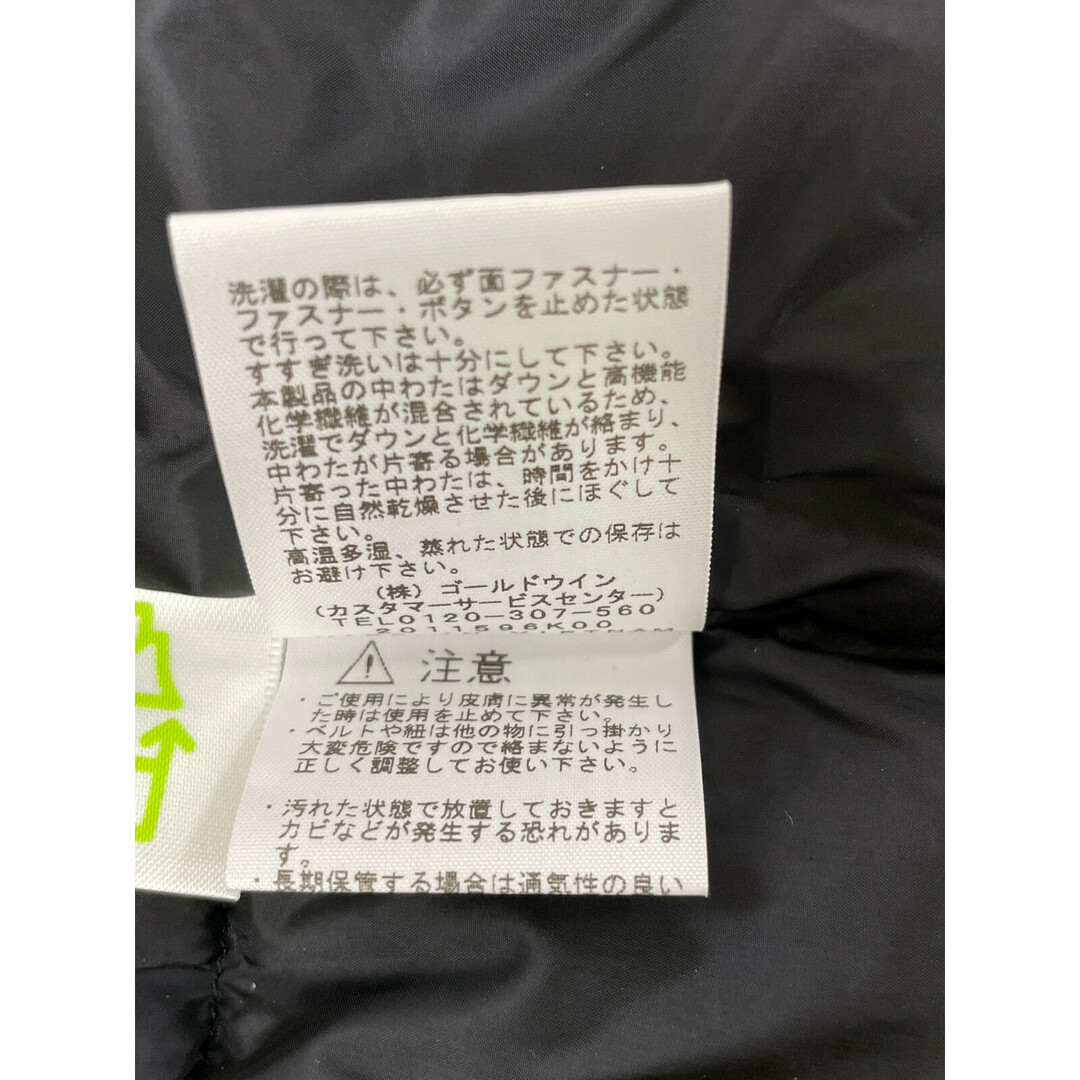 洗濯の際は、必ず面ファスナー・
ファスナー・ボタンを止めた状態
で行って下さい。
すすぎ洗いは十分にして下さい。
本製品の中わたはダウンと高機能
化学繊維が混合されているため、
洗濯でダウンと化学繊維が絡まり、
中わたが片寄る場合があります。
片寄った中わたは、時間をかけ十
分に自然乾燥させた後にほぐして
下さい。
高温多湿、蒸れた状態での保存は
お避け下さい。
(株) ゴールドウイン
(カスタマーサービスセンター)
TEL0120-307-560
注意
・ご使用により皮膚に異常が発生し
た時は使用を止めて下さい。
・ベルトや紐は他の物に引っ掛かり
大変危険ですので絡まないように
正しく調整してお使い下さい。
・汚れた状態で放置しておきますと
カビなどが発生する恐れがありま
す。
・長期保管する場合は通気性の良い